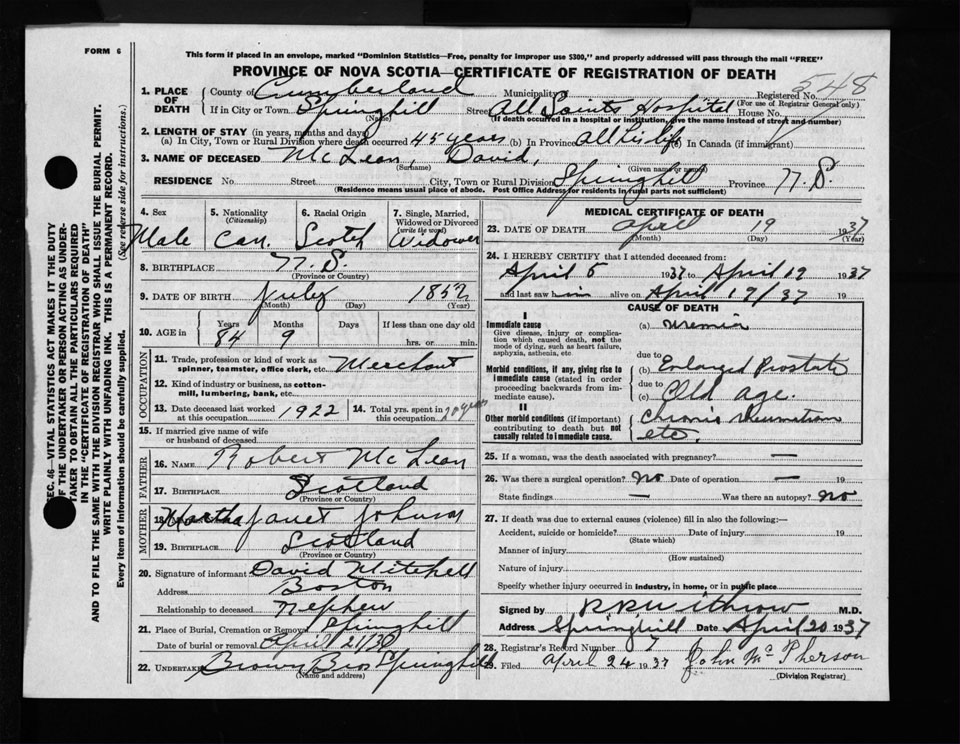 FORM 6
This form if placed in an envelope, marked "Dominion Statistics—Free, penalty for improper use $300," and properly addressed will pass through the mail "FREE"
PROVINCE OF NOVA SCOTIA—CERTIFICATE OF REGISTRATION OF DEATH
548
1. PLACE OF DEATH County of Cumberland Municipality Registered No.
(For use of Registrar General only)
If in City or Town Springhill Street All Saints Hospital House No.
(Name) (If death occurred in a hospital or institution, give the name instead of street and number)
2. LENGTH OF STAY (in years, months and days)
(a) In City, Town or Rural Division where death occurred 45 years (b) In Province all his life (c) In Canada (if immigrant)
3. NAME OF DECEASED McLean, David,
(Surname) (Given name or names)
RESIDENCE No. Street City, Town or Rural Division Springhill Province N. S.
(Residence means usual place of abode. Post Office Address for residents in rural parts not sufficient)
4. Sex Male
5. Nationality (Citizenship) Can.
6. Racial Origin Scotch
7. Single, Married, Widowed or Divorced (write the word) Widower
8. BIRTHPLACE N. S.
(Province or Country)
9. DATE OF BIRTH July 1852
(Month) (Day) (Year)
10. AGE in Years Months Days If less than one day old
84 9 hrs. or min.
OCCUPATION
11. Trade, profession or kind of work as spinner, teamster, office clerk, etc. Merchant
12. Kind of industry or business, as cotton-mill, lumbering, bank, etc.
13. Date deceased last worked at this occupation 1922
14. Total yrs. spent in this occupation years
15. If married give name of wife or husband of deceased
FATHER
16. NAME Robert McLean
17. BIRTHPLACE Scotland
(Province or Country)
MOTHER
18. Martha Janet Johnson
19. BIRTHPLACE Scotland
(Province or Country)
20. Signature of informant David Mitchell
Address Boston
Relationship to deceased Nephew
21. Place of Burial, Cremation or Removal Springhill
Date of burial or removal April 21/37
22. Undertaker Brown Bros Springhill
(Name and address)
MEDICAL CERTIFICATE OF DEATH
23. DATE OF DEATH April 19 1937
(Month) (Day) (Year)
24. I HEREBY CERTIFY that I attended deceased from:
April 5 1937 to April 19 1937
and last saw him alive on April 19/37 19
CAUSE OF DEATH
I
Immediate cause (a) uremia
Give disease, injury or complication which caused death, not the mode of dying, such as heart failure, asphyxia, asthenia, etc
due to
Morbid conditions, if any, giving rise to immediate cause (stated in order proceeding backwards from immediate cause).
(b) Enlarged Prostate
due to
(c) Old age.
II
Other morbid conditions (if important) contributing to death but not causally related to immediate cause.
Chronic rheumatism
etc.
25. If a woman, was the death associated with pregnancy? —
26. Was there a surgical operation? No Date of operation —
State findings — Was there an autopsy? No
27. If death was due to external causes (violence) fill in also the following:—
Accident, suicide or homicide? Date of injury 19
(State which)
Manner of injury
(How sustained)
Nature of injury
Specify whether injury occurred in industry, in home, or in public place
Signed by Withrow M.D.
Address Springhill Date April 20 1937
28. Registrar's Record Number 7
29. Filed April 24 1937 John McPherson
(Division Registrar)
SEC. 46—VITAL STATISTICS ACT MAKES IT THE DUTY
OF THE UNDERTAKER OR PERSON ACTING AS UNDER-
TAKER TO OBTAIN ALL THE PARTICULARS REQUIRED
IN THE "CERTIFICATE OF REGISTRATION OF DEATH"
AND TO FILE THE SAME WITH THE DIVISION REGISTRAR WHO SHALL ISSUE THE BURIAL PERMIT.
WRITE PLAINLY WITH UNFADING INK. THIS IS A PERMANENT RECORD.
Every item of information should be carefully supplied. (See reverse side for instructions.)